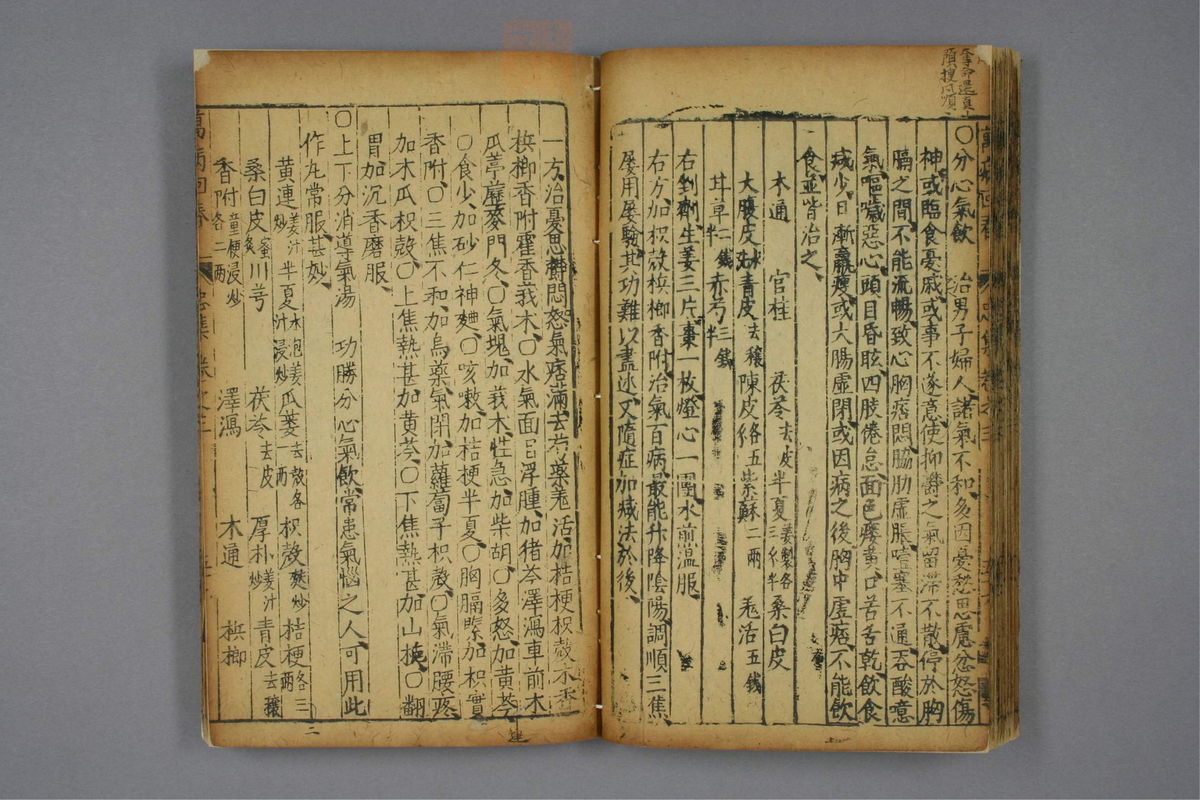 奪命還真
○分心氣飲　治男子婦人諸氣不和多因憂愁思慮忿怒傷
神或臨食憂戚或事不遂意使抑欝之氣留滯不散停於胸
膈之間不能流暢致心胸痞悶脇肋虛脹噎塞不通吞酸噫
氣嘔噦惡心頭目昏眩四肢倦怠面色痿黃口苦舌乾飲食
减少日漸羸瘦或大腸虛閉或因病之後胸中虛痞不能飲
食並皆治之
木通　官桂　茯苓去皮 半夏姜製各三分半 桑白皮
大腹皮 青皮去穰 陳皮各五 紫蘇二兩 羗活五錢
甘草二錢半 赤芍三錢半
右剉劑生姜三片棗一枚燈心一團水煎溫服
右方加枳殼梹榔香附治氣百病最能升降陰陽調順三焦
屢用屢驗其功難以盡述又隨症加减法於後
一方治憂思欝悶怒氣痞滿去芍藥羗活加桔梗枳殼木香
梹榔香附霍香莪木○水氣面目浮腫加猪苓澤瀉車前木
瓜葶藶麥門冬○氣塊加莪木性急加柴胡○多怒加黃芩
○食少加砂仁神曲○咳嗽加桔梗半夏○胸膈緊加枳實
香附○三焦不和加烏藥氣閉加蘿蔔子枳殼○氣滯腰疼
加木瓜枳殼○上焦熱甚加黃芩○下焦熱甚加山梔○翻
胃加沉香磨服
○上下分消導氣湯　功勝分心氣飲常患氣惱之人可用此
作丸常服甚妙
黃連姜汁炒 半夏水泡姜汁浸炒 瓜蔞去殼各一兩 枳殼麸炒 桔梗各三兩
桑白皮蜜炙 川芎　茯苓去皮 厚朴姜汁炒 青皮去穰
香附童便浸炒各二兩 澤瀉　木通　梹榔
萬病回春　忠集　卷之三
二